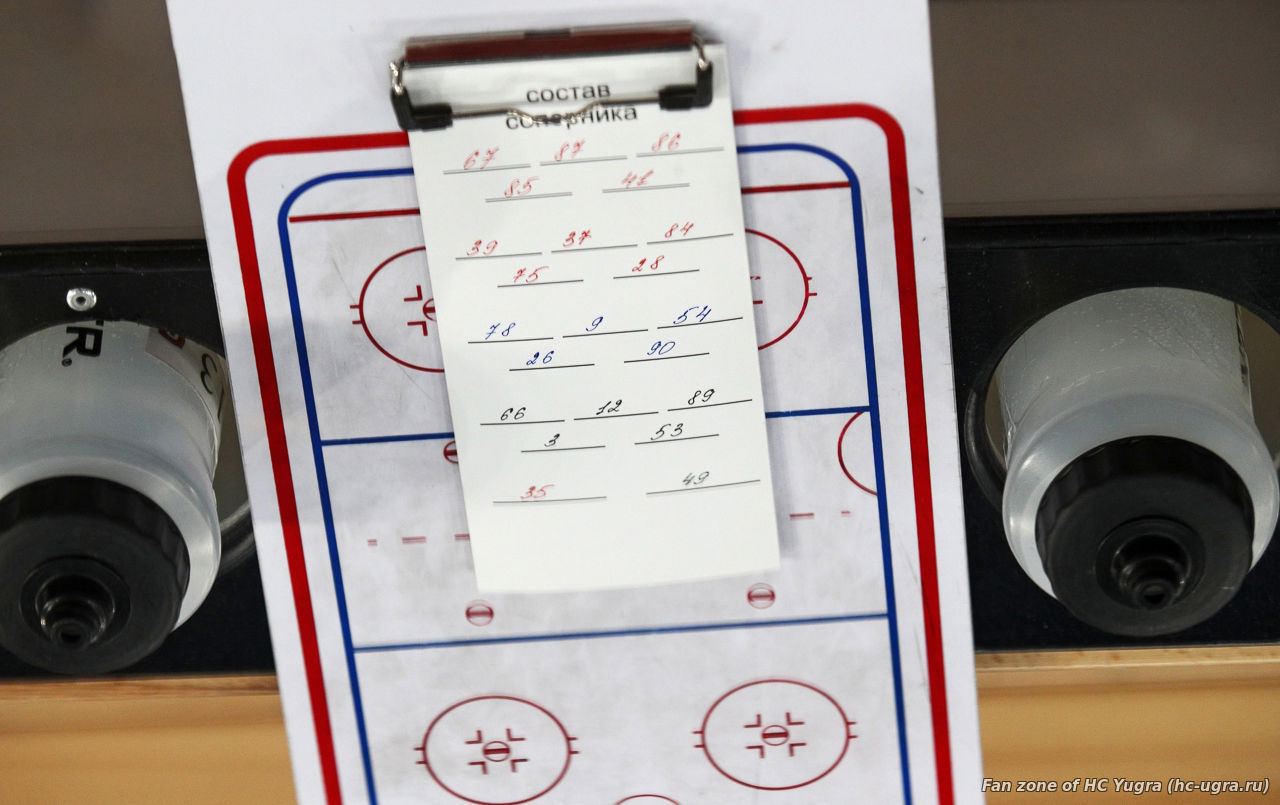 состав
соперника
67 87 86
85 41
39 37 84
75 28
78 9 54
26 90
66 12 89
3 53
35 49
TR.
Fan zone of HC Yugra (hc-ugra.ru)